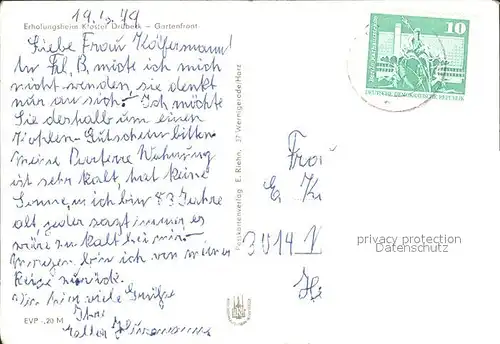 19.5.79
Erholungsheim Kloster Drübeck – Gartenfront
Liebe Frau Käfermann!
An Frl. B. möcte ich mich
nicht wenden sie denkt
nur an sich. Ich möchte
Sie deshalb um einen
Kohlen-Gutschein bitten
meine Parterre Wohnung
ist sehr kalt, hat keine
Sonne, u. ich bin 83 Jahre
alt, jeder sagt immer es
wäre zu kalt bei mir.
Morgen bin ich von meiner
Reise zurück.
viele Grüße
Ihre
EVP -,20 M
Postkartenverlag E. Riehn, 37 Wernigerode/Harz
10
Berlin, Rathausstraße
DEUTSCHE DEMOKRATISCHE REPUBLIK
Frau
E. K
3014
H
privacy protection
Datenschutz